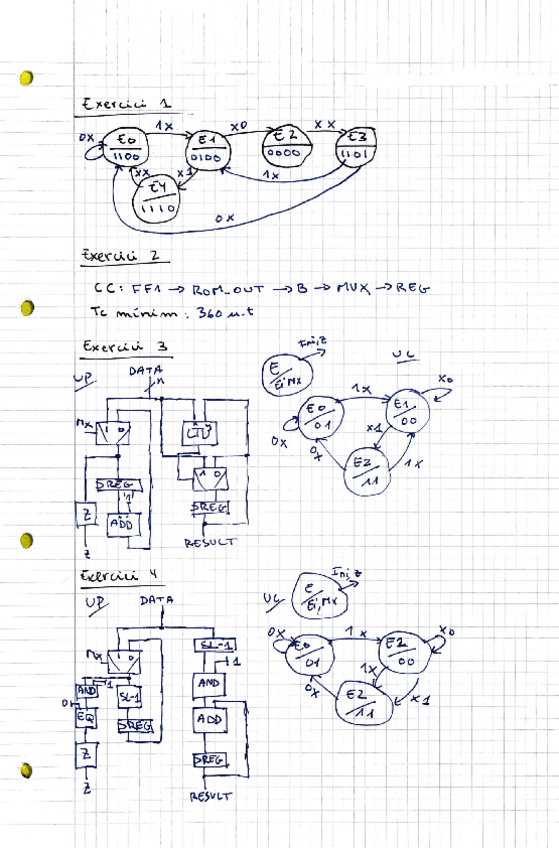 Exercici 1
0x
E0
1100
1x
E1
0100
x0
E2
0000
xx
E3
1101
xx
x1
1x
E4
1110
0x
Exercici 2
CC: FF1 → ROM_OUT → B → MUX → REG
Tc mínim: 360 u.t
Exercici 3
UP
DATA
n
Mx
1 0
LTU
>REG
1 0
Z
ADD
>REG
Z
RESULT
Ini,Z
E
Ei,Mx
UC
E0
01
1x
E1
00
x0
0x
x1
0x
E2
11
1x
Exercici 4
UP
DATA
Mx
1 0
SL-1
AND
1
SL-1
1
AND
0
EQ
>REG
ADD
Z
>REG
Z
RESULT
UC
Ini,Z
E
Ei,Mx
0x
E0
01
1x
E2
00
x0
1x
0x
E2
11
x1